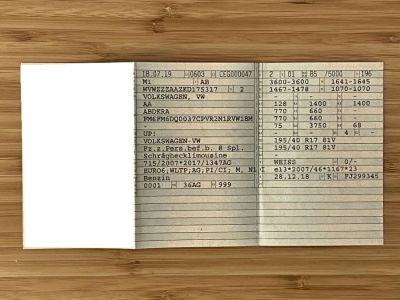 18.07.19 0603 CEG000047
M1 AB
WVWZZZAAZKD175317 2
VOLKSWAGEN, VW
AA
ABDKRA
-
UP!
VOLKSWAGEN-VW
Fz.z.Pers.bef.b. 8 Spl.
Schräghecklimousine
715/2007*2017/1347AG
EURO6;WLTP;AG;PI/CI; M, N1 I
Benzin
0001 36AG 999
2 01 B5 /5000 196
3600-3600 1641-1645
1467-1478 1070-1070
- - -
128 1400 1400
770 660 -
770 660 -
75 3750 68
- - 4 -
195/40 R17 81V
195/40 R17 81V
-
WEISS 0/-
e13*2007/46*1167*23
28.12.18 K PJ299345